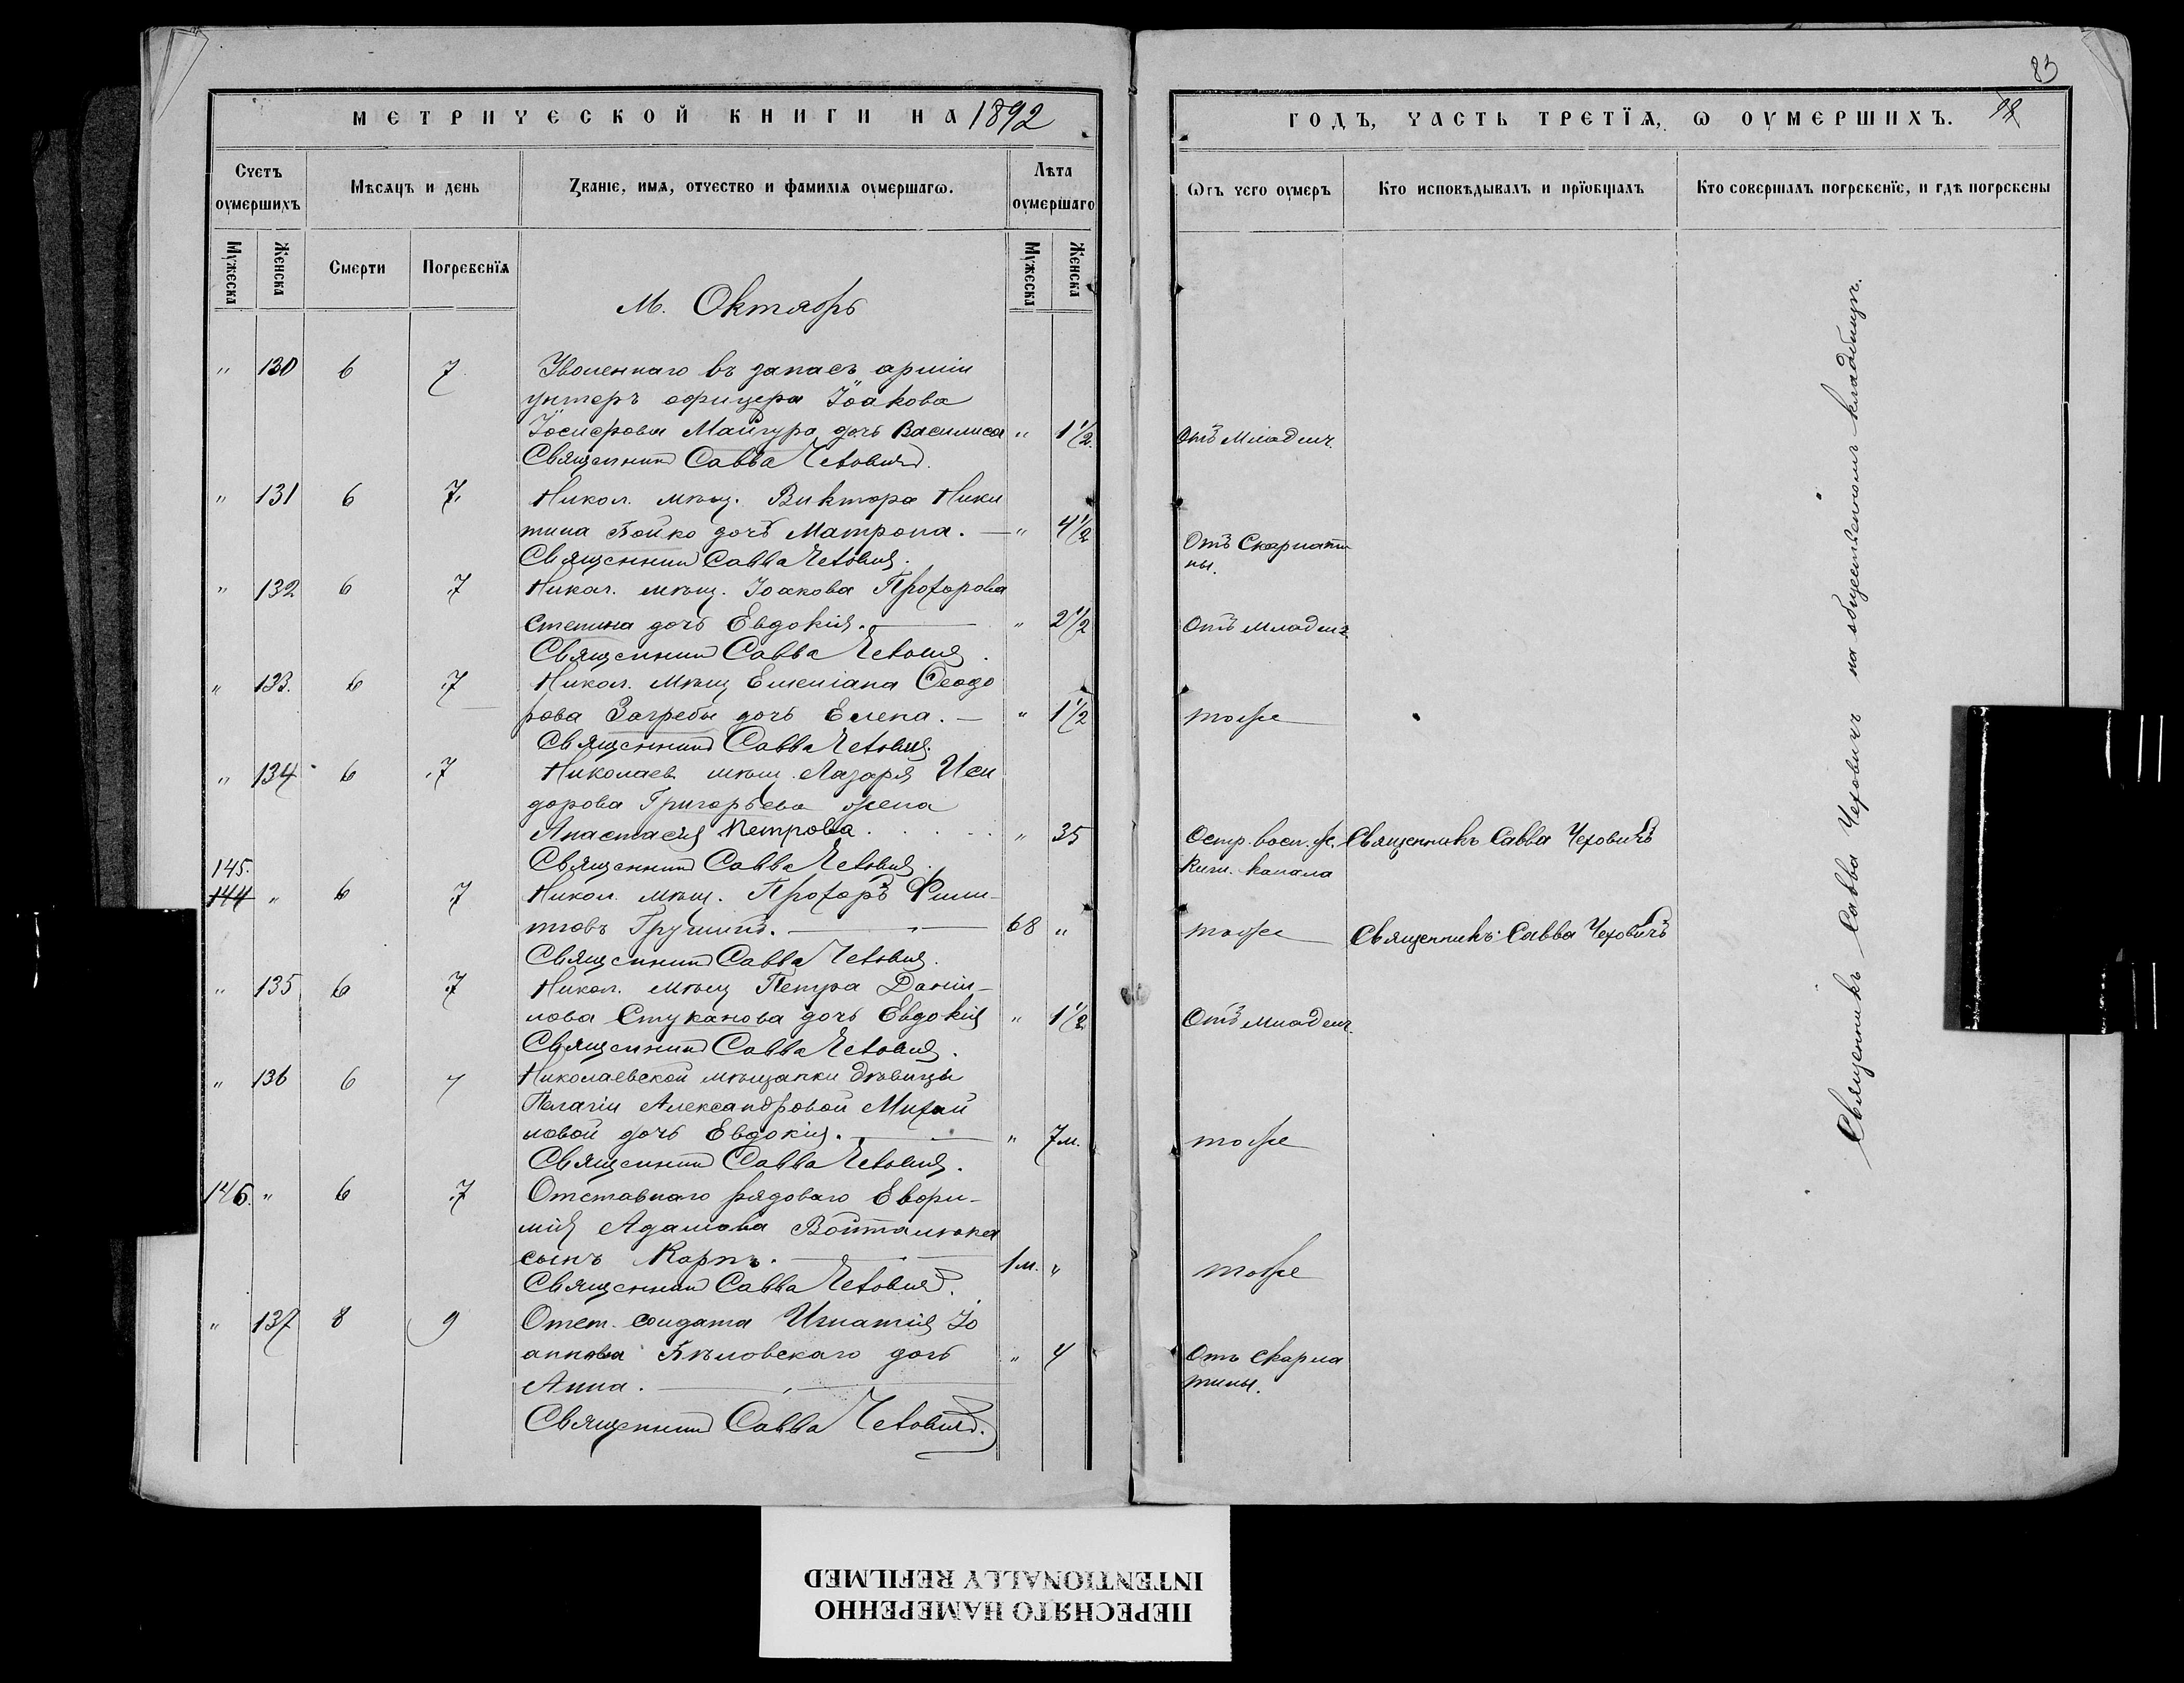 МЕТРИЧЕСКОЙ КНИГИ НА 1892
Счетъ оумершихъ
Мѣсяцъ и день
Званіе, имя, отчество и фамилія оумершагѡ.
Лѣта оумершаго
Мужеска
Женска
Смерти
Погребенїя
Мужеска
Женска
М. Октябрь
" 130 6 7 Уволеннаго въ запасъ арміи
унтеръ офицера Іоакова
Іосифова Майгура дочь Василиса " 1 1/2
Священникъ Савва Чеховичъ.
" 131 6 7. Никол. мѣщ. Виктора Ники
тина Бойко дочь Матрона. — " 4 1/2
Священникъ Савва Чеховичъ.
" 132 6 7 Никол. мѣщ. Іоакова Прохорова
Степина дочь Евдокія. — " 2 1/2
Священникъ Савва Чеховичъ.
" 133. 6 7 Никол. мѣщ Емеліана Ѳеодо
рова Загребы дочь Елена. — " 1 1/2
Священникъ Савва Чеховичъ.
" 134 6 7 Николаев мѣщ. Лазаря Иси
дорова Григорьева жена
Анастасія Петрова. " 35
Священникъ Савва Чеховичъ.
145.
144 " 6 7 Никол. мѣщ. Прохоръ Фили-
повъ Грушинъ. — 68 "
Священникъ Савва Чеховичъ.
" 135 6 7 Никол. мѣщ Петра Даніи-
лова Стуканова дочь Евдокія " 1 1/2
Священникъ Савва Чеховичъ.
" 136 6 7 Николаевской мѣщанки дѣвицы
Пелагіи Александровой Михай
ловой дочь Евдокія. — " 7 м.
Священникъ Савва Чеховичъ.
146. " 6 7 Отставнаго рядоваго Евфи-
мія Адамова Войталюка
сынъ Карпъ. — 1 м. "
Священникъ Савва Чеховичъ.
" 137 8 9 Отст. солдата Игнатія Іо
аннова Бѣловскаго дочь " 4
Анна. —
Священникъ Савва Чеховичъ.
83
ГОДЪ, ЧАСТЬ ТРЕТЇЯ, Ѡ ОУМЕРШИХЪ.
Ѿтъ чего оумеръ
Кто исповѣдывалъ и прїѡбщалъ
Кто совершалъ погребенїе, и гдѣ погребены
Отъ младенч.
Отъ Скарлати
ны.
Отъ младенч
тоже
Остр. восп. ж. Священникъ Савва Чеховичъ
киш. канала
тоже Священникъ Савва Чеховичъ
Отъ младенч.
тоже
тоже
Отъ скарла
тины.
Священникъ Савва Чеховичъ на общественномъ кладбищѣ.
ПЕРЕСНЯТО НАМЕРЕННО
INTENTIONALLY REFILMED